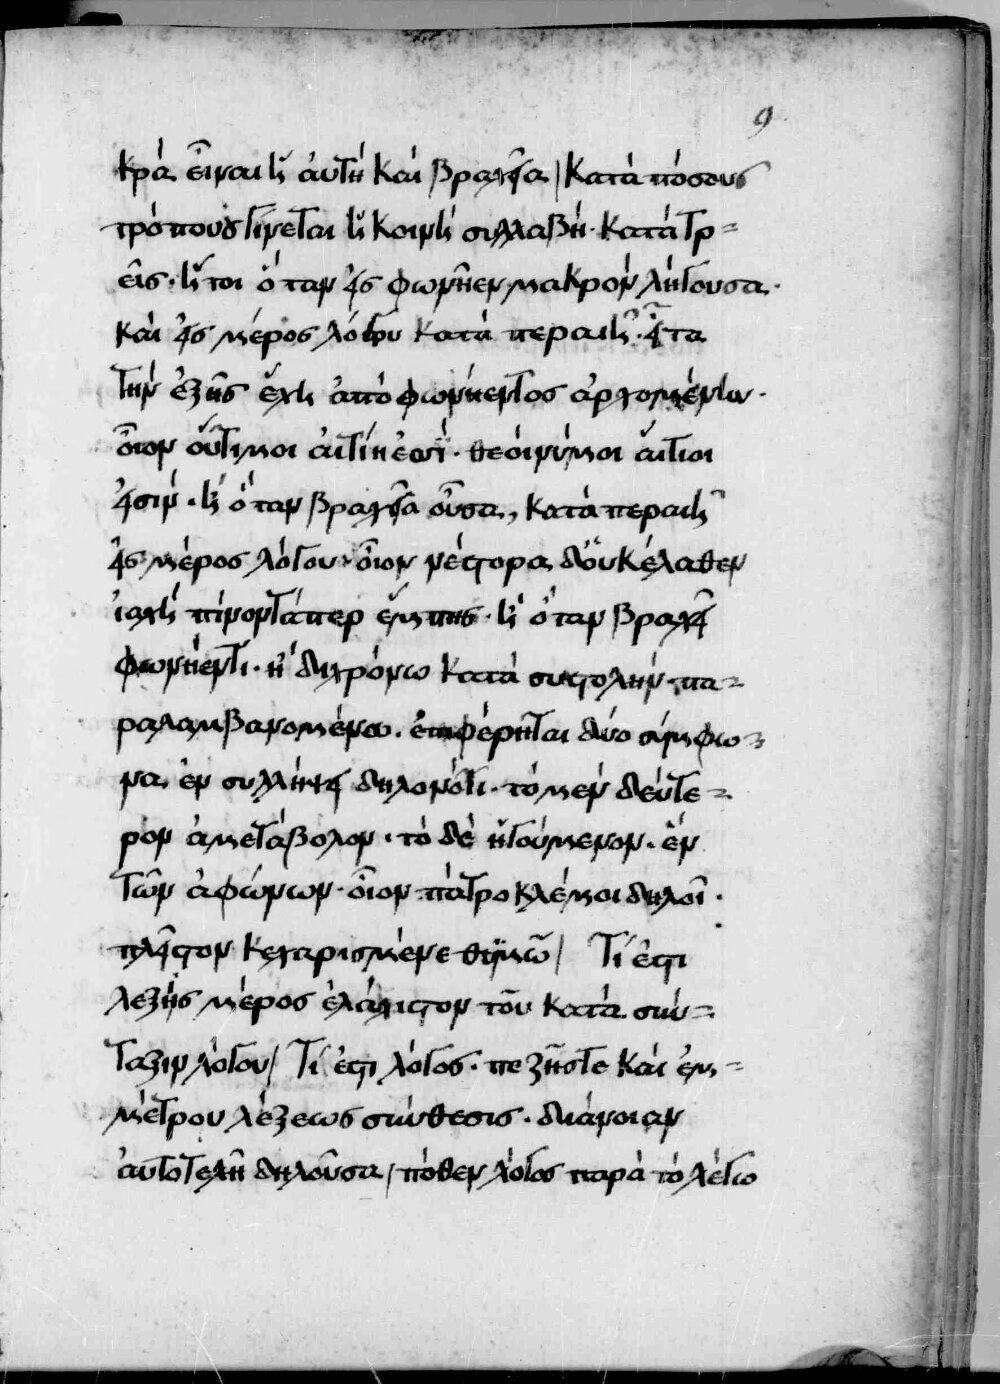 9
κρά εἶναι ἢ αὐτὴ καὶ βραχεῖα / Κατὰ πόσους
τρόπους γίνεται ἡ κοινὴ σιλλαβή· κατὰ τρ=
εῖς· ἤτοι ὅταν εἰς φωνῆεν μακρὸν λήγουσα·
καὶ εἰς μέρος λόγου κατὰ περαιῆ· εἶτα
τὴν ἑξῆς ἔχη ἀπὸ φωνήεντος ἀρχομένην·
οἷον οὔτιμοι αἰτίη ἐσσί· θεοί νύμοι αἴτιοι
εἰσίν· ἢ ὅταν βραχεῖα οὖσα, κατὰ περαιῆ
εἰς μέρος λόγου· οἷον νέστορα δ'οὐκ έλαθεν
ἰαχὴ πίνοντάπερ ἔμπης· ἢ ὅταν βραχεῖ
φωνήεντι· ἢ διχρόνω κατὰ συστολὴν πα=
ραλαμβανομένω· ἐπιφέρηται δύο σύμφω=
να ἐν συλλήψει δηλονότι· τὸ μὲν δεύτε=
ρον ἀμετάβολον· τὸ δὲ ἡγούμενον· ἓν
τῶν ἀφώνων· οἷον πάτροκλέ μοι δηλοῖ·
πλεῖστον κεχαρισμένε θυμῶ / Τί ἐστι
λεξὴς μέρος ἐλάχιστον τοῦ κατὰ σύν=
ταξιν λόγου / Τί ἐστι λόγος· πεζῆς τε καὶ ἐμ=
μέτρου λέξεως σύνθεσις· διάνοιαν
αὐτοτελῆ δηλοῦσα / πόθεν λόγος παρὰ τὸ λέγω